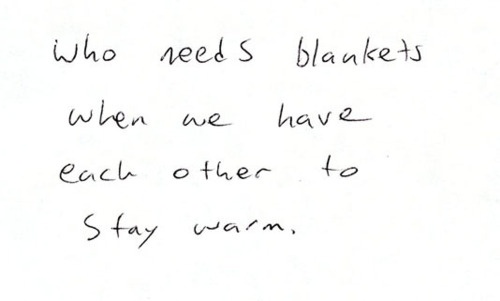 who needs blankets
when we have
each other to
stay warm.